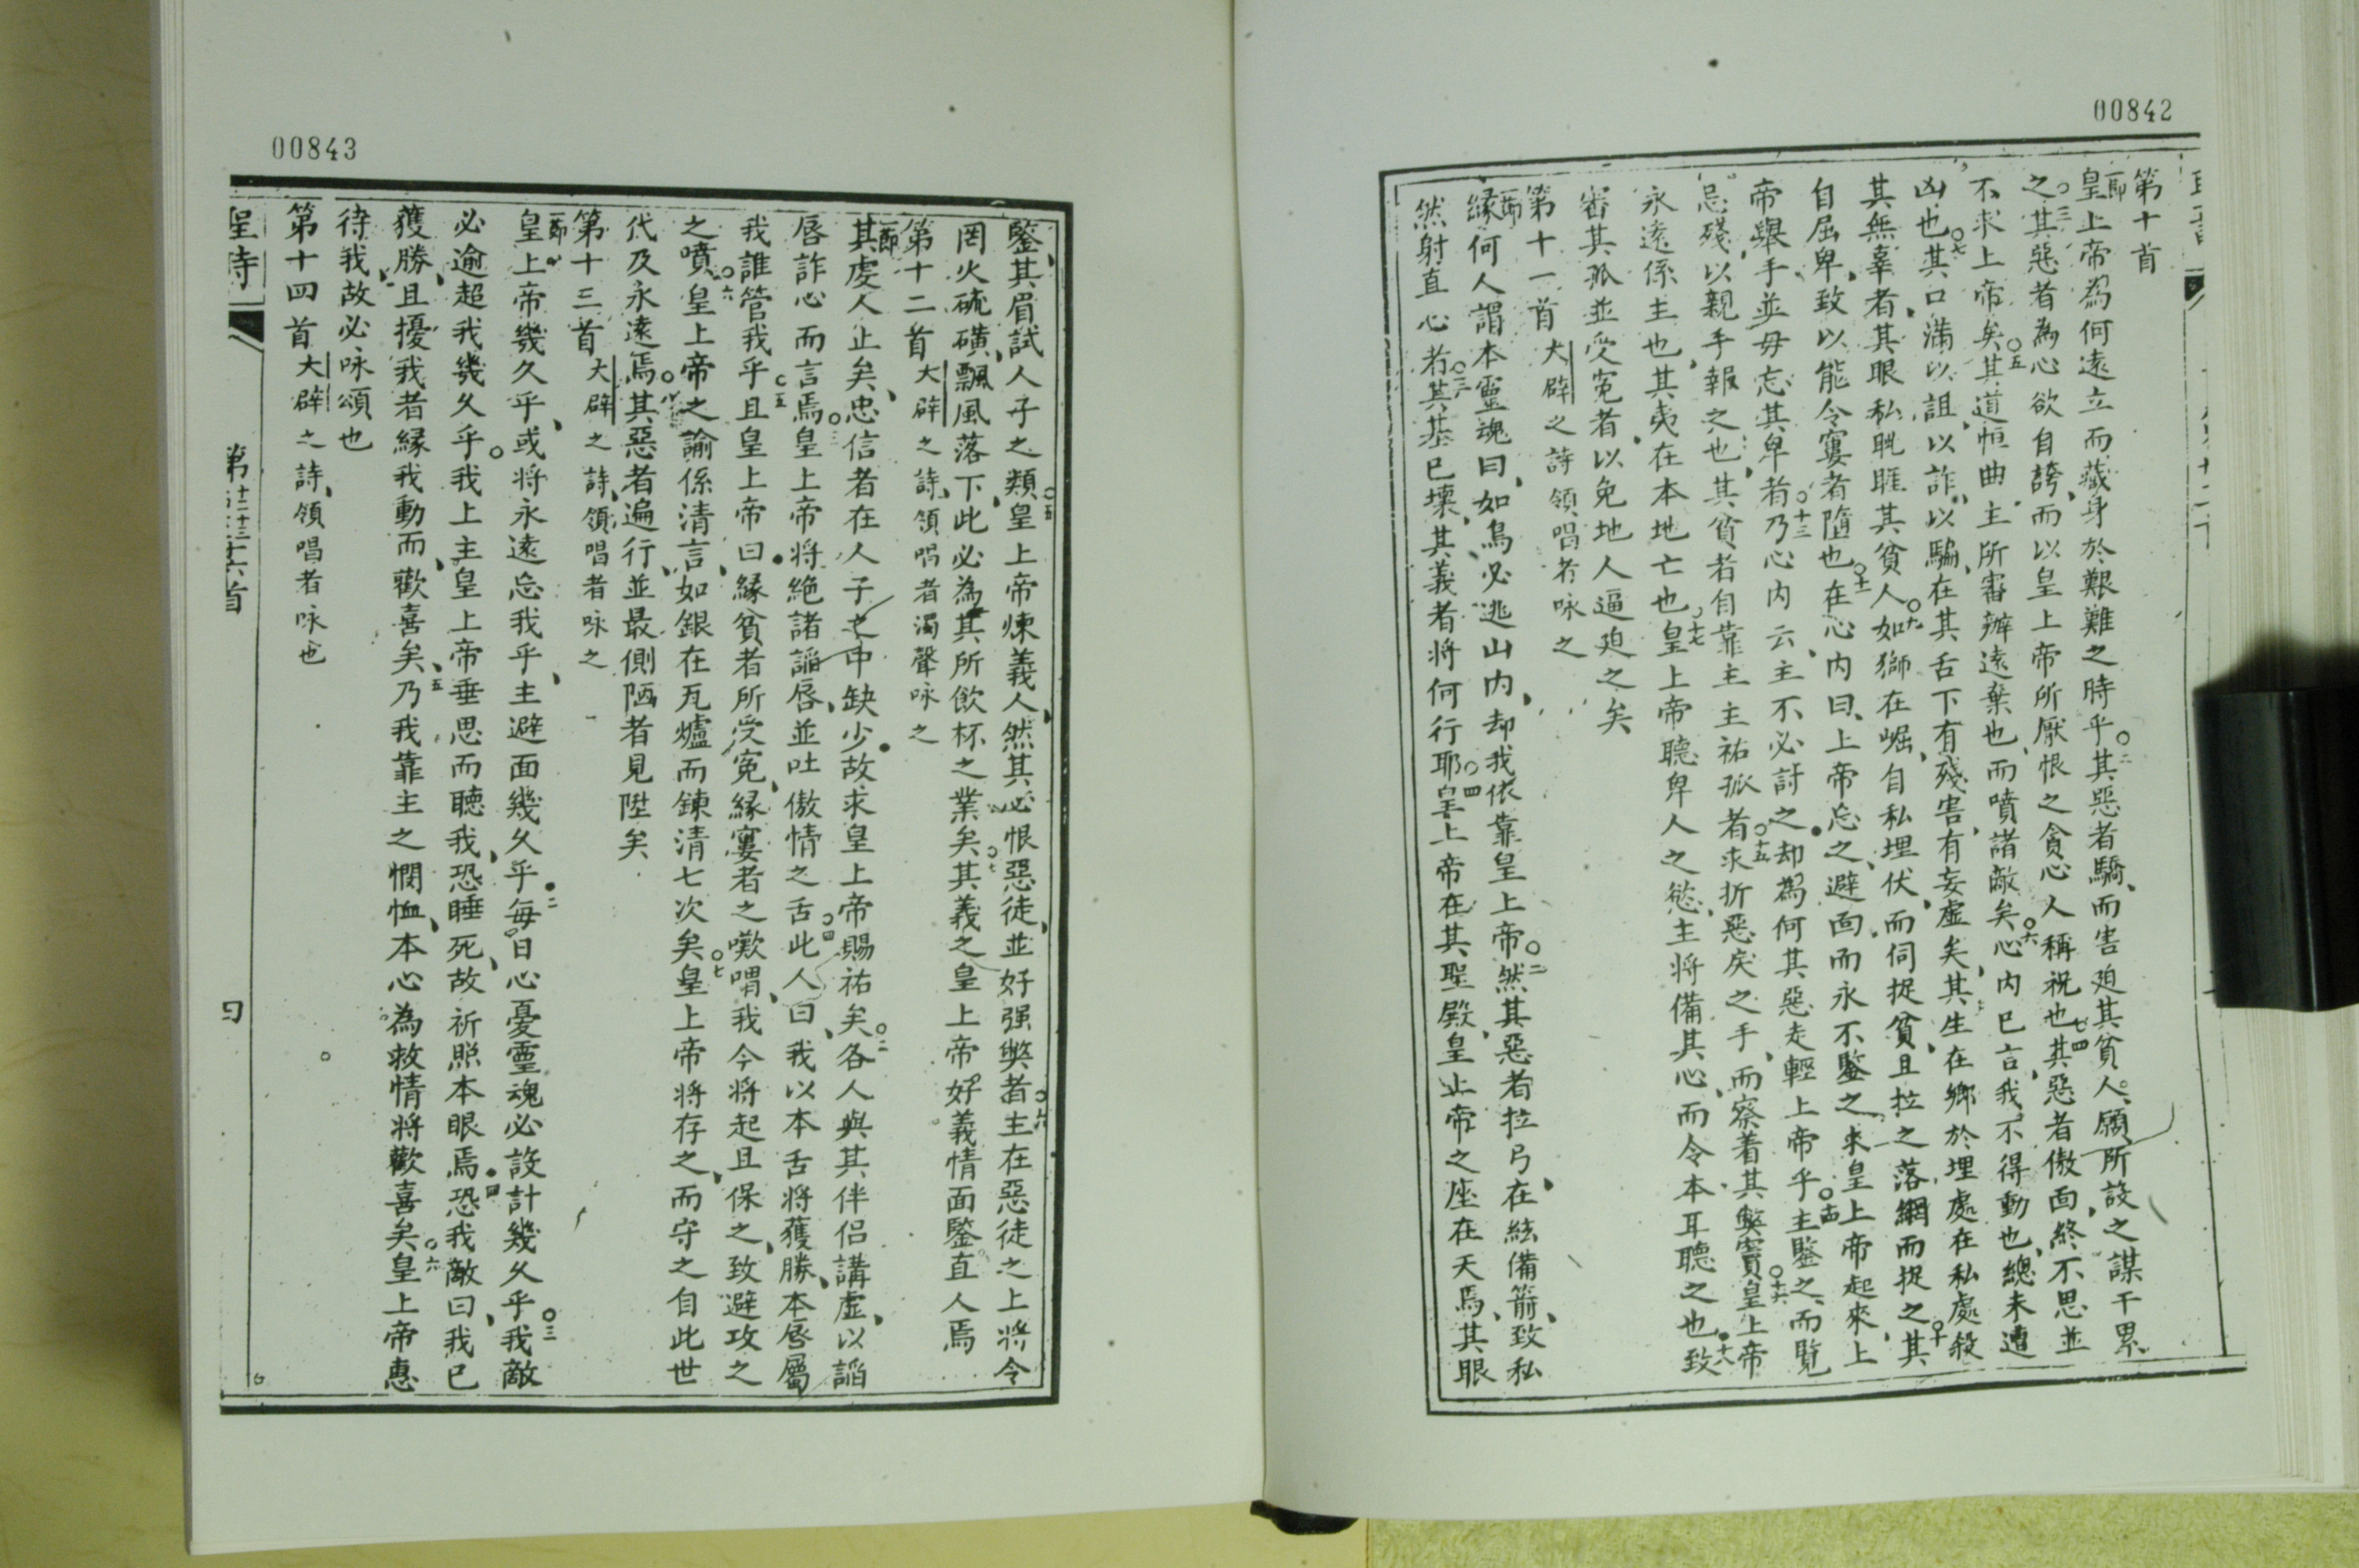 00842
第十首
一節皇上帝為何遠立而藏身於艱難之時乎○二其惡者驕、而害廹其貧人、願所設之謀干累
之○三其惡者為心欲自誇、而以皇上帝所厭恨之貪心人稱祝也○四其惡者傲面、終不思並
不求上帝矣○五其道恒曲、主所審辦遠棄也、而噴諸敵矣○六心內巳言、我不得動也、總未遭
凶也○七其口滿以詛、以詐、以騙、在其舌下有殘害、有妄虛矣、其生在鄉於埋處在私處殺
其無辜者、其眼私眺睚其貧人○九如獅在崛、自私埋伏、而伺捉貧、且拉之落網而捉之○十其
自屈卑、致以能令窶者墮也○十一在心內曰、上帝忘之、避面而永不鑒之、來皇上帝起來、上
帝舉手、並毋忘其卑者○十三乃心內云、主不必討之、却為何其惡走輕上帝乎○十四主鑒之、而覽
忌殘、以親手報之也、其貧者自靠主主祐孤者○十五求折惡戾之手、而察着其獘實○十六皇上帝
永遠係主也、其夷在本地亡也○十七皇上帝聽卑人之慾、主將備其心、而令本耳聽之也○十八致
審其孤並受寃者、以免地人逼廹之矣
第十一首 大辟之詩領唱者咏之
一節緣何人謂本靈魂曰、如鳥必逃山內、却我依靠皇上帝○二然其惡者拉弓、在絃備箭、致私
然射直心者○三其基已壞、其義者將何行耶○四皇上帝在其聖殿、皇上帝之座在天焉、其眼
00843
鑒、其眉試人子之類○五皇上帝煉義人、然其必恨惡徒、並好强獘者○六主在惡徒之上將令
罔火硫磺、飄風落下、此必為其所飲杯之業矣○七其義之皇上帝好義情面鑒直人焉
第十二首 大辟之詩、領唱者濁聲咏之
一節其虔人止矣、忠信者在人子之中缺少、故求皇上帝賜祐矣○二各人與其伴侶講虛、以謟
唇詐心而言焉○三皇上帝將絶諸謟唇、並吐傲情之舌○四此人曰、我以本舌將獲勝、本唇屬
我誰管我乎○五且皇上帝曰、緣貧者所受寃、緣窶者之嘆喟、我今將起且保之、致避攻之
之噴○六皇上帝之諭係清言、如銀在瓦爐而鍊清七次矣○七皇上帝將存之、而守之自此世
代及永遠焉○八其惡者遍行、並最側陋者見陞矣
第十三首 大辟之詩、領唱者咏之
一節皇上帝幾久乎、或將永遠忘我乎、主避面幾久乎○二每日心憂靈魂必設計幾久乎○三我敵
必逾超我幾久乎○我上主皇上帝垂思而聽我、恐睡死、故祈照本眼焉○四恐我敵曰、我已
獲勝、且擾我者緣我動而歡喜矣○五乃我靠主之憫恤、本心為救情將歡喜矣○六皇上帝惠
待我、故必咏頌也
第十四首 大辟之詩、領唱者咏也
聖詩